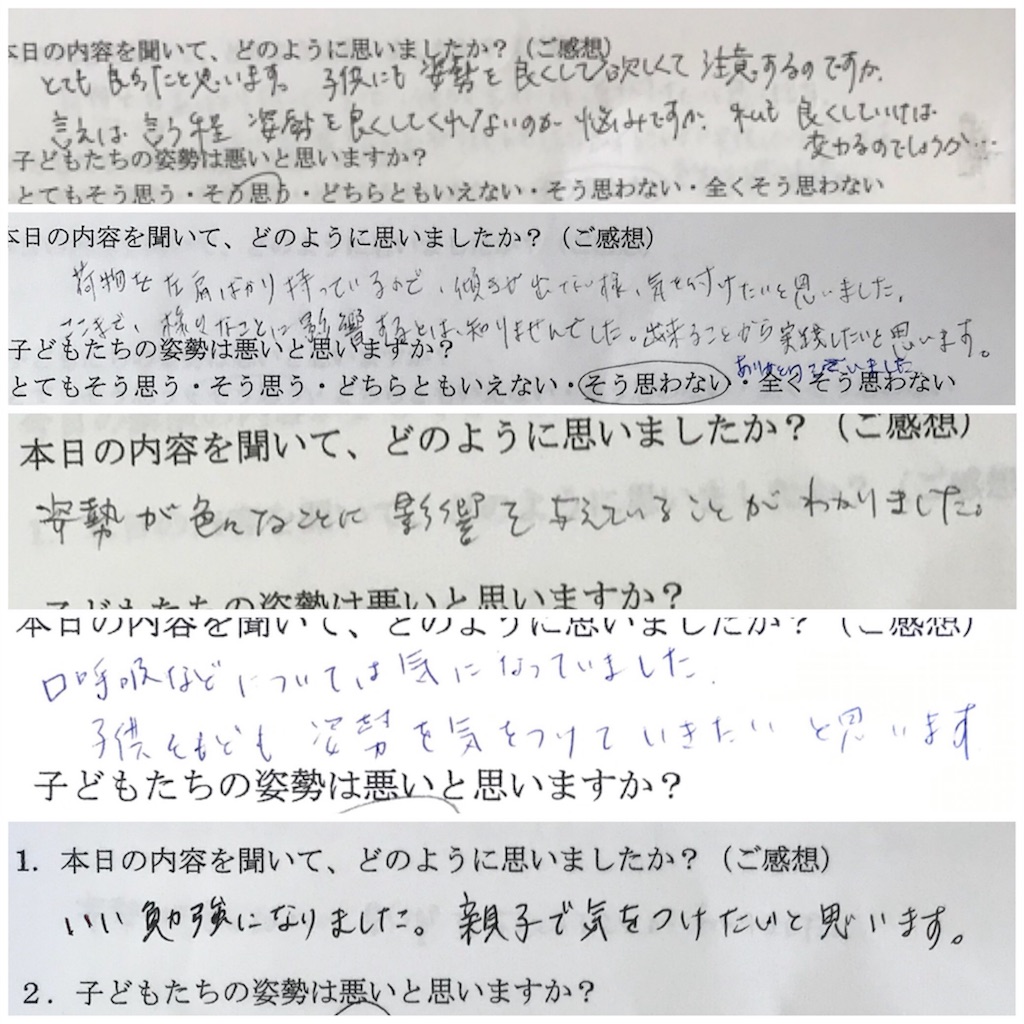 本日の内容を聞いて、どのように思いましたか？（ご感想）
とても良かったと思います。子供にも姿勢を良くして欲しくて注意するのですが、
言えば言う程姿勢を良くしてくれないのが悩みですが、私も良くしていけば
変わるのでしょうか…
子どもたちの姿勢は悪いと思いますか？
とてもそう思う・そう思う・どちらともいえない・そう思わない・全くそう思わない
本日の内容を聞いて、どのように思いましたか？（ご感想）
荷物を左肩ばかり持っているので、傾きが出ない様、気を付けたいと思いました。
ここまで、様々なことに影響するとは、知りませんでした。出来ることから実践したいと思います。
ありがとうございました
子どもたちの姿勢は悪いと思いますか？
とてもそう思う・そう思う・どちらともいえない・そう思わない・全くそう思わない
本日の内容を聞いて、どのように思いましたか？（ご感想）
姿勢が色んなことに影響を与えていることがわかりました。
子どもたちの姿勢は悪いと思いますか？
本日の内容を聞いて、どのように思いましたか？（ご感想）
口呼吸などについては気になっていました.
子供ともども姿勢を気をつけていきたいと思います
子どもたちの姿勢は悪いと思いますか？
1. 本日の内容を聞いて、どのように思いましたか？（ご感想）
いい勉強になりました。親子で気をつけたいと思います。
2．子どもたちの姿勢は悪いと思いますか？